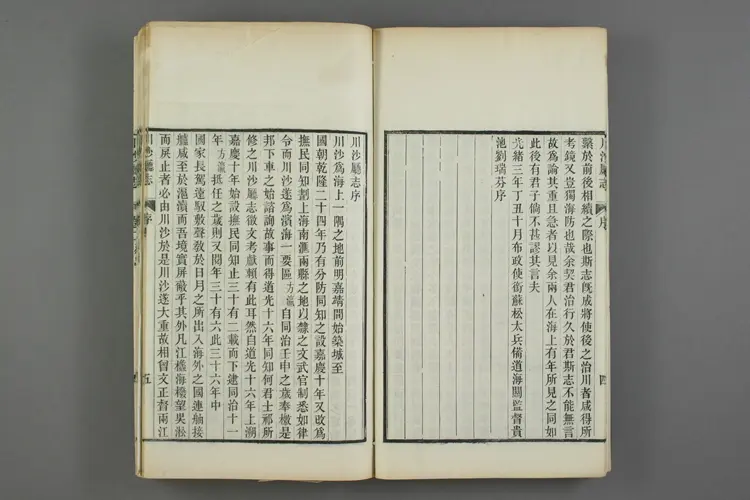 繫於前後相續之際也斯志旣成將使後之治川者咸得所
考鏡又豈獨海防也哉余契君治行久於君斯志不能無言
故爲論其重且急者以見余兩人在海上有年所見之同如
此後有君子倘不甚謬其言夫
光緒三年丁丑十月布政使銜蘇松太兵備道海關監督貴
池劉瑞芬序
川沙廳志
序
四
川沙廳志序
川沙爲海上一隅之地前明嘉靖間始築城至
國朝乾隆二十四年乃有分防同知之設嘉慶十年又改爲
撫民同知割上海南滙兩縣之地以隸之文武官制悉如律
令而川沙遂爲濱海一要區方瀛自同治壬申之歲奉檄是
邦下車之始諮詢故事而得道光十六年同知何君士祁所
修之川沙廳志徵文考獻賴有此耳然自道光十六年上溯
嘉慶十年始設撫民同知止三十有二載而下逮同治十一
年方瀛抵任之歲則又閱年三十有六此三十六年中
國家長駕遠馭敷聲敎於日月之所出入海外之國連舳接
艫咸至於滬瀆而吾境實屏徽乎其外凡江檣海𦪭望吳淞
而戾止者必由川沙於是川沙遂大重故相曾文正督兩江
川沙廳志
序
五